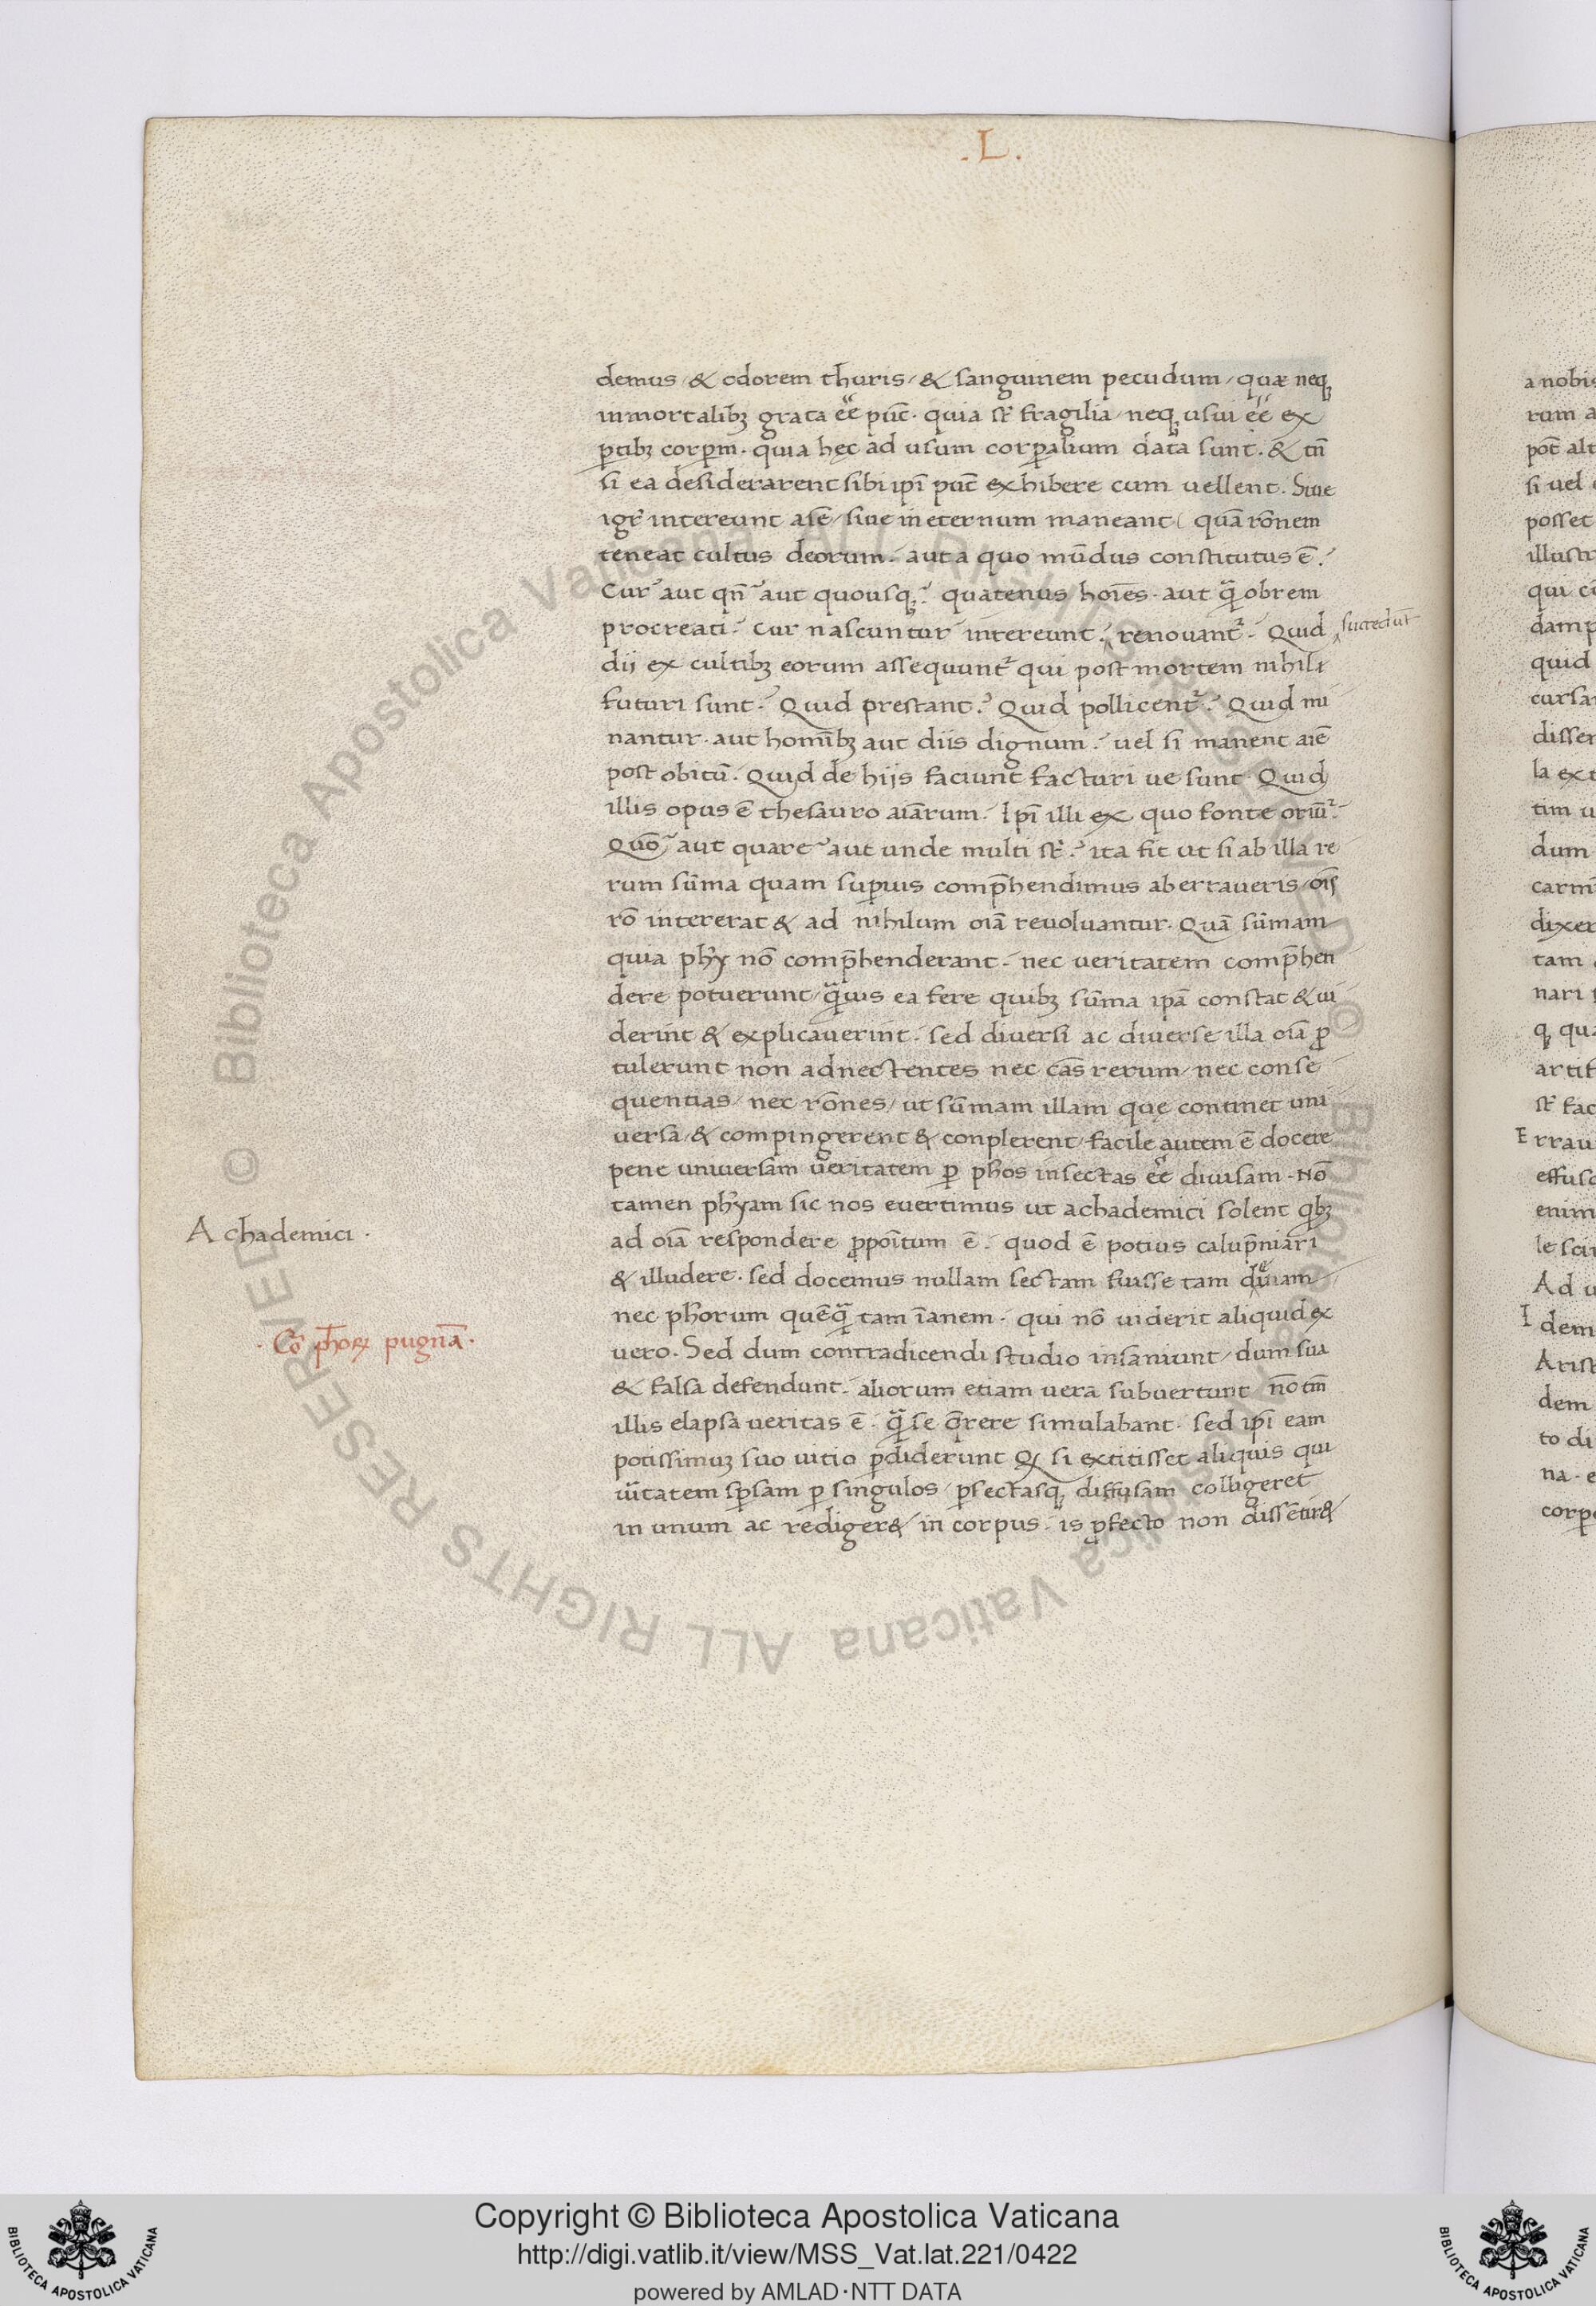 . L .
demus / & odorem thuris / & sanguinem pecudum / quæ neqꝫ
inmortalibꝫ grata eē̃ pūt · quia st̃ fragilia / neqꝫ usui eē̃ ex
ꝑtibꝫ corꝑm̃ · quia hęc ad usum corꝑalium data sunt . & tñ
si ea desiderarent sibi ip̃i pūt exhibere cum uellent . Siue
igr̃ intereunt aīe / siue in eternum maneant ( quā rōnem
teneat cultus deorum . aut a quo mūdus constitutus ē ?
Cur aut qn̄ aut quousqꝫ ? quatenus hoīes · aut q̄ꝫ obrem
procreati ? cur nascuntur intereunt ? renouant̃ ? Quid succedūt
dij ex cultibꝫ eorum assequunt̃ qui post mortem nihili
futuri sunt ? Quid prestant ? Quid pollicent̃ ? Quid mi
nantur · aut homībꝫ aut diis dignum ? uel si manent aīe
post obitū . Quid de hijs faciunt facturi ue sunt Quid
illis opus ē thesauro aīarum ? Ip̃i illi ex quo fonte oriūt̃ ?
Quō aut quare aut unde multi st̃ ? ita fit ut si ab illa re
rum sūma quam suꝑius comp̄hendimus aberraueris / oīs
rō intererat & ad nihilum oīa reuoluantur · Quā sūmam
quia ph̃y nō comp̄henderant . nec ueritatem comp̄hen
dere potuerunt / q̄ꝫuis ea fere quibꝫ sūma ip̃a constat & ui
derint & explicauerint . sed diuersi ac diuerse illa oīa ꝓ
tulerunt non adnectentes nec cās rerum / nec conse
quentias / nec rōnes / ut sūmam illam quę continet uni
uersa / & compingerent & conplerent / facile autem ē docere
pene uniuersam ueritatem ꝑ ph̃os in sectas eē̃ diuisam · Nō
tamen ph̃yam sic nos euertimus ut achademici solent qbꝫ
Achademici ·
ad oīa respondere ꝓpoītum ē . quod ē potius calup̄niari
& illudere . sed docemus nullam sectam fuisse tam deuiam
nec ph̃orum quēq̄ꝫ tam īanem . qui nō uiderit aliquid ex
· Cō ph̃oꝝ pugnā ·
uero . Sed dum contradicendi studio insaniunt / dum sua
& falsa defendunt . aliorum etiam uera subuertunt nō tm̄
illis elapsa ueritas ē . q̄ꝫ se q̄rere simulabant . sed ip̃i eam
potissimuꝫ suo uitio ꝑdiderunt Qꝫ si extitisset aliquis qui
ūitatem sꝑsam ꝑ singulos / ꝑ sectasqꝫ diffusam colligeret
in unum ac rediger& in corpus . is ꝓfecto non dissētir&